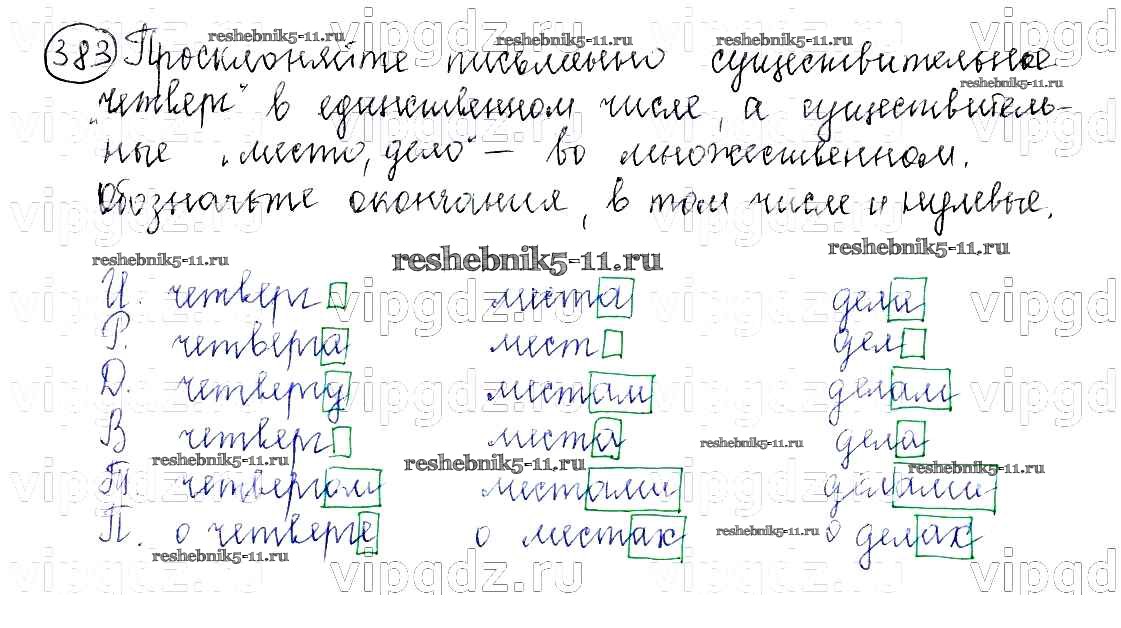 383 Просклоняйте письменно существительное
„четверг" в единственном числе, а существитель-
ные „место, дело" — во множественном.
Обозначьте окончания, в том числе и нулевые.
reshebnik5-11.ru
И. четверг места дела
Р. четверга мест дел
Д. четвергу местам делам
В четверг места дела
Т. четвергом местами делами
П. о четверге о местах о делах
vipgdz.ru